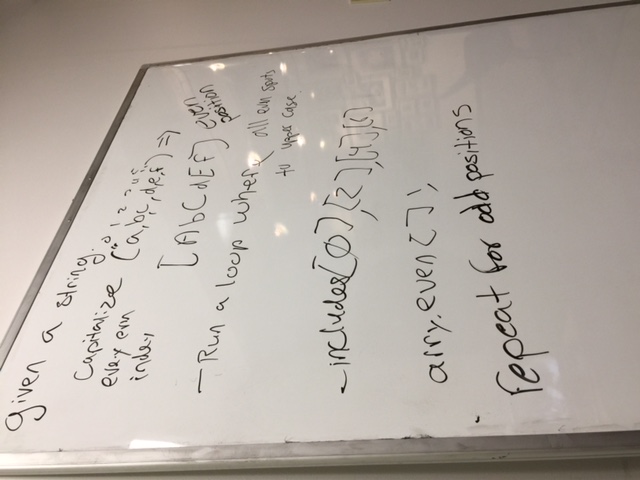 given a string.
0 1 2 3 4 5
Capitalize ("a,b,c,d,e,f") =>
every even
index
[AbCdEf] even
position
- Run a loop where all even spots
to upper case
- includes [0], [2], [4], [6]
arry.even[];
repeat for odd positions